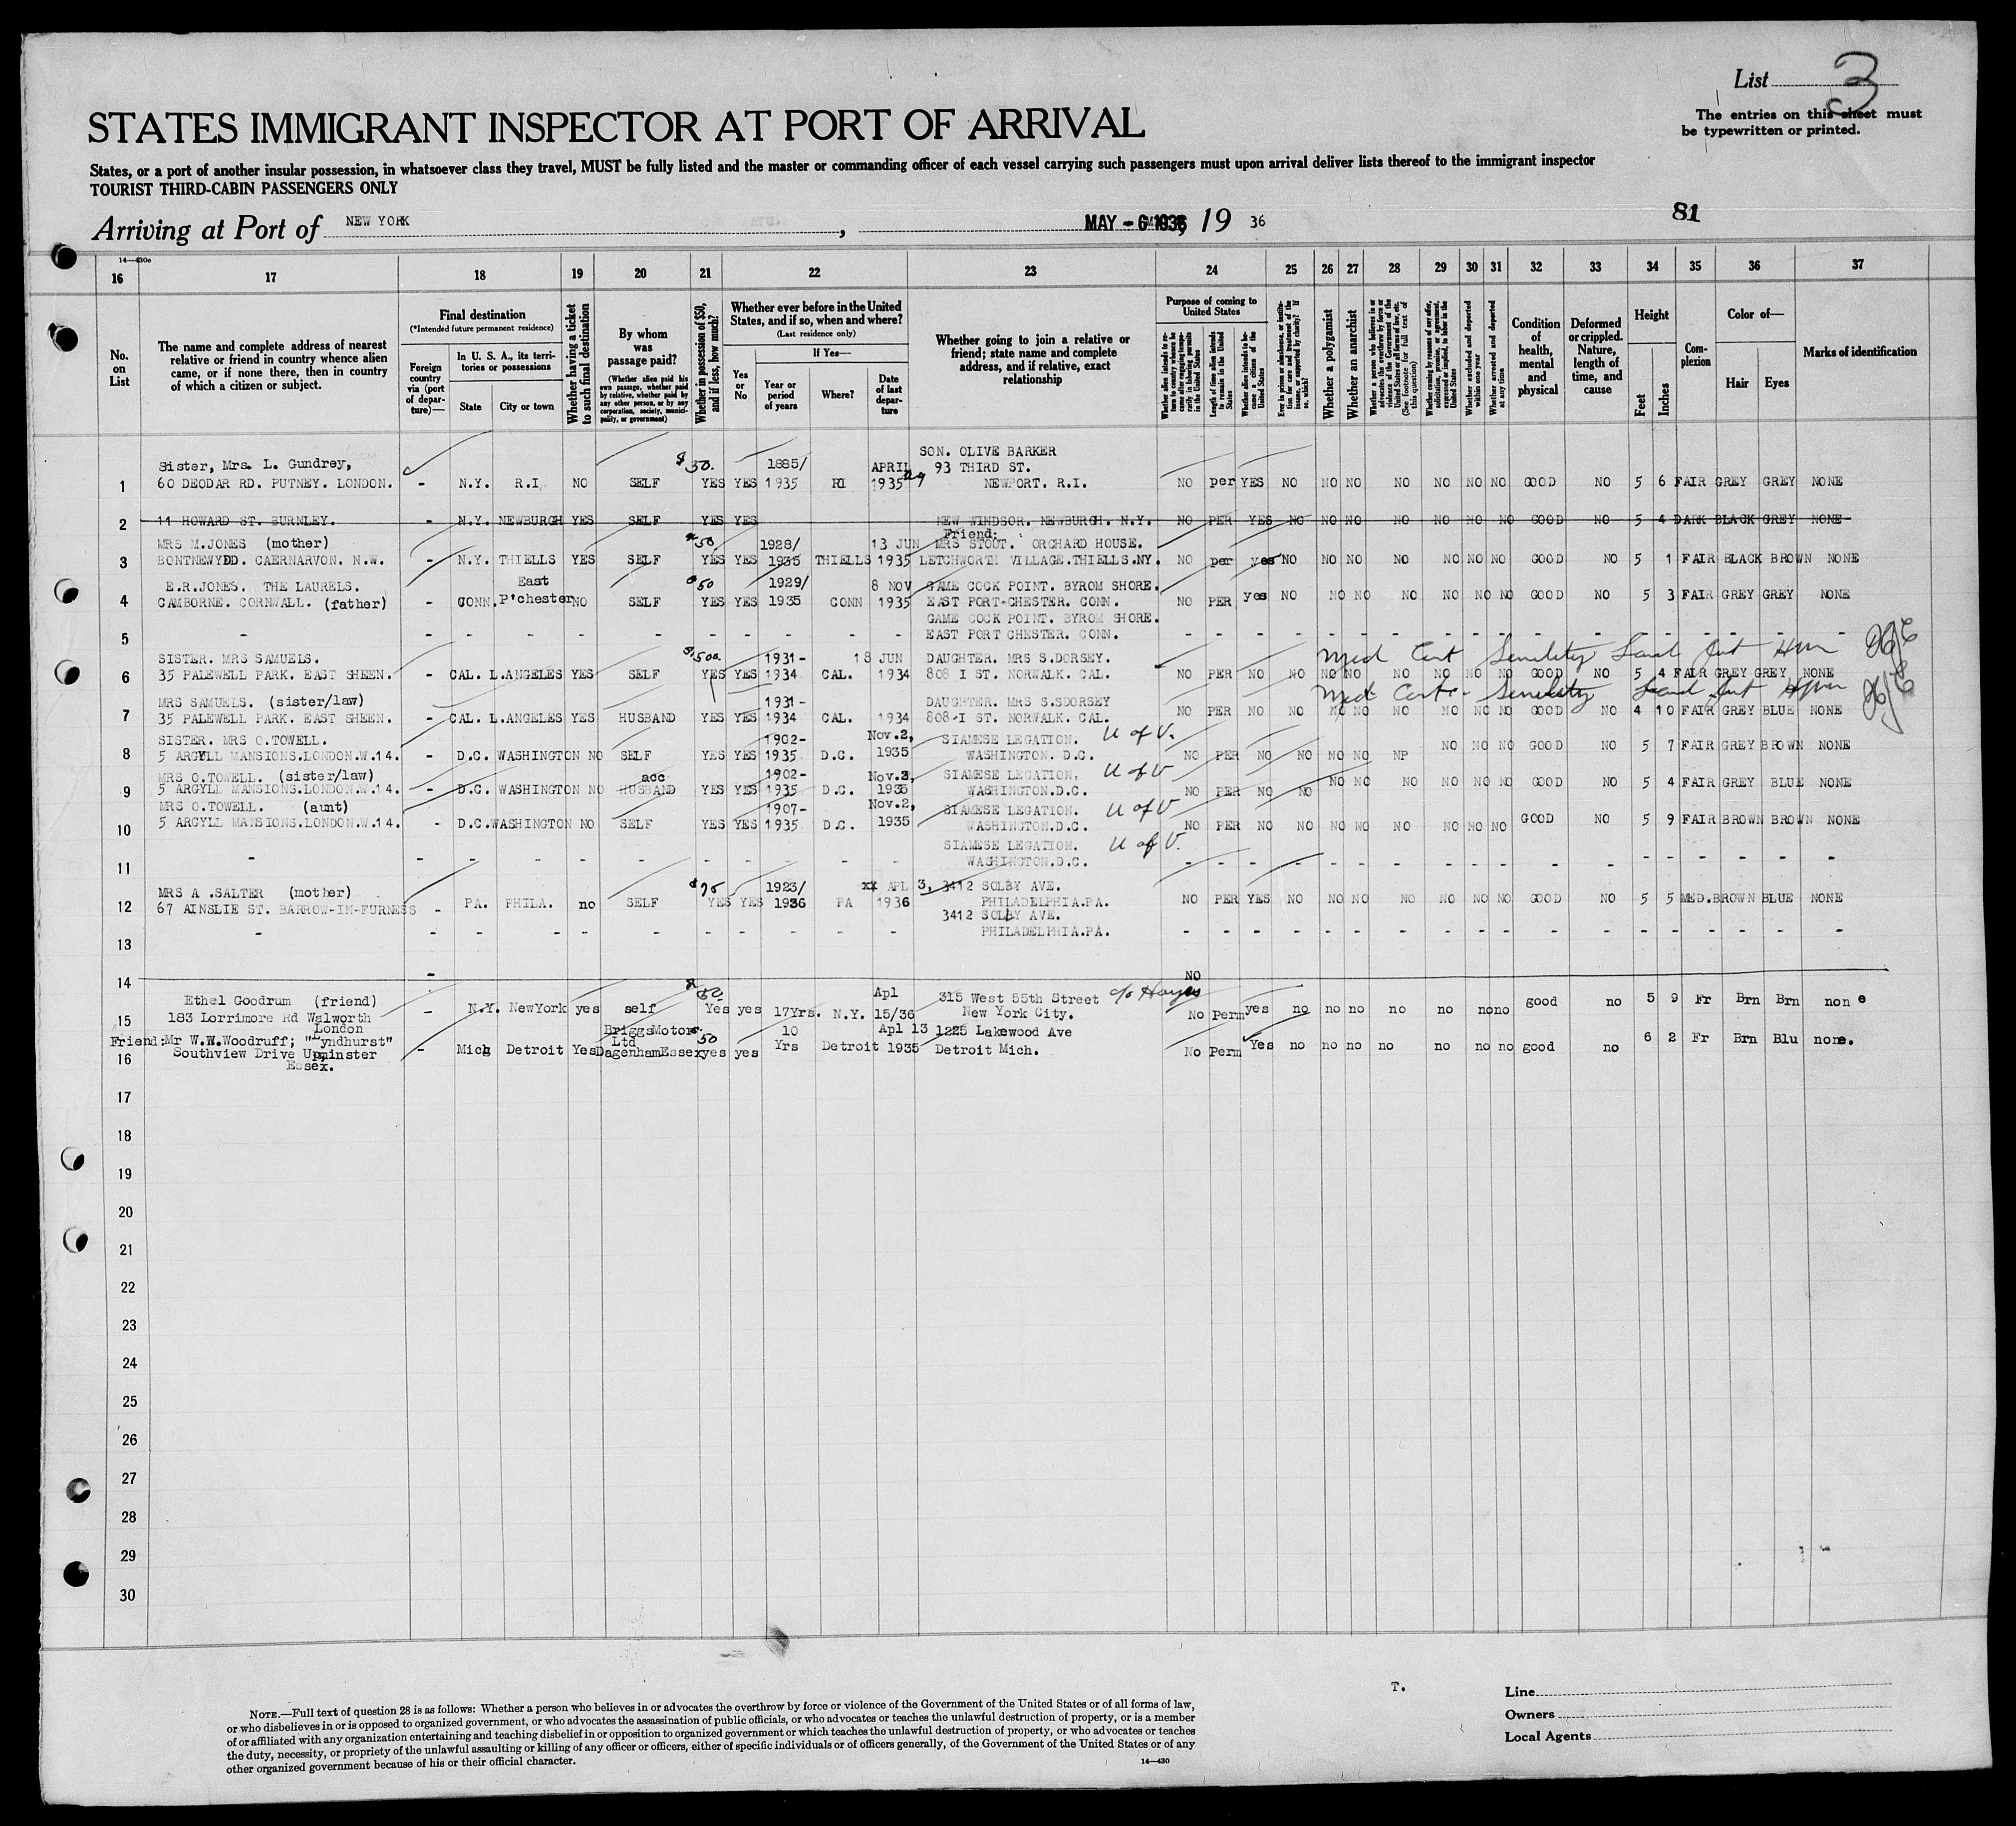 List 3
The entries on this sheet must
be typewritten or printed.
STATES IMMIGRANT INSPECTOR AT PORT OF ARRIVAL
States, or a port of another insular possession, in whatsoever class they travel, MUST be fully listed and the master or commanding officer of each vessel carrying such passengers must upon arrival deliver lists thereof to the immigrant inspector
TOURIST THIRD-CABIN PASSENGERS ONLY
Arriving at Port of NEW YORK, MAY - 6 1936, 19 36
81
14—430e
16 17 18 19 20 21 22 23 24 25 26 27 28 29 30 31 32 33 34 35 36 37
No. on List
The name and complete address of nearest relative or friend in country whence alien came, or if none there, then in country of which a citizen or subject.
Final destination
(*Intended future permanent residence)
Foreign country via (port of departure)—
In U. S. A., its territories or possessions
State
City or town
Whether having a ticket to such final destination
By whom was passage paid?
(Whether alien paid his own passage, whether paid by relative, whether paid by any other person, or by any corporation, society, municipality, or government)
Whether in possession of $50, and if less, how much?
Whether ever before in the United States, and if so, when and where?
(Last residence only)
Yes or No
If Yes—
Year or period of years
Where?
Date of last departure
Whether going to join a relative or friend; state name and complete address, and if relative, exact relationship
Purpose of coming to United States
Whether alien intends to return to country whence he came after engaging temporarily in laboring pursuits in the United States
Length of time alien intends to remain in the United States
Whether alien intends to become a citizen of the United States
Ever in prison or almshouse, or institution for care and treatment of the insane, or supported by charity? If so, which?
Whether a polygamist
Whether an anarchist
Whether a person who believes in or advocates the overthrow by force or violence of the Government of the United States or all forms of law, etc. (See footnote for full text of this question)
Whether coming by reasons of any offer, solicitation, promise, or agreement, expressed or implied, to labor in the United States
Whether excluded and deported within one year
Whether arrested and deported at any time
Condition of health, mental and physical
Deformed or crippled. Nature, length of time, and cause
Height
Feet
Inches
Complexion
Color of—
Hair
Eyes
Marks of identification
Sister, Mrs. L. Gundrey, $50. 1885/ APRIL SON. OLIVE BARKER 93 THIRD ST.
1 60 DEODAR RD. PUTNEY. LONDON. - N.Y. R.I, NO SELF YES YES 1935 RI 1935 NEWPORT. R.I. NO per YES NO NO NO NO NO NO NO GOOD NO 5 6 FAIR GREY GREY NONE
2 11 HOWARD ST. BURNLEY. - N.Y. NEWBURGH YES SELF YES YES NEW WINDSOR. NEWBURGH. N.Y. NO PER YES NO NO NO NO NO NO NO GOOD NO 5 4 DARK BLACK GREY NONE
MRS M.JONES (mother) $50 1928/ 13 JUN Friend: MRS STOUT. ORCHARD HOUSE.
3 BONTNEWYDD. CAERNARVON. N.W. - N.Y. THIELLS YES SELF YES YES 1935 THIELLS 1935 LETCHWORTH VILLAGE.THIELLS.NY. NO per yes NO NO NO NO NO NO NO GOOD NO 5 1 FAIR BLACK BROWN NONE
E.R.JONES. THE LAURELS. East $50 1929/ 8 NOV GAME COCK POINT. BYROM SHORE.
4 CAMBORNE. CORNWALL. (father) - CONN. P'chester NO SELF YES YES 1935 CONN 1935 EAST PORT-CHESTER. CONN. NO PER yes NO NO NO NO NO NO NO GOOD NO 5 3 FAIR GREY GREY NONE
GAME COCK POINT. BYROM SHORE.
5 - - - - - - - - - - - EAST PORT CHESTER. CONN. - - - - - - - - - - - - - - - - - -
SISTER. MRS SAMUELS. $1,500. 1931- 18 JUN DAUGHTER. MRS S.DORSEY. Med Cert Senility
6 35 PALEWELL PARK. EAST SHEEN. - CAL. L.ANGELES YES SELF YES YES 1934 CAL. 1934 808 I ST. NORWALK. CAL. NO PER NO NO NO NO NO NO NO NO GOOD NO 5 4 FAIR GREY GREY NONE
MRS SAMUELS. (sister/law) 1931- DAUGHTER. MRS S.SDORSEY Med Cert - Senility
7 35 PALEWELL PARK. EAST SHEEN. - CAL. L.ANGELES YES HUSBAND YES YES 1934 CAL. 1934 808-I ST. NORWALK. CAL. NO PER NO NO NO NO NO NO NO NO GOOD NO 4 10 FAIR GREY BLUE NONE
SISTER. MRS O.TOWELL. 1902- Nov.2, SIAMESE LEGATION. U of V.
8 5 ARGYLL MANSIONS.LONDON.W.14. - D.C. WASHINGTON NO SELF YES YES 1935 D.C. 1935 WASHINGTON. D.C. NO PER NO NO NO NO NP NO NO NO GOOD NO 5 7 FAIR GREY BROWN NONE
MRS O.TOWELL. (sister/law) acc 1902- Nov.2, SIAMESE LEGATION, U of V
9 5 ARGYLL MANSIONS.LONDON.W.14. - D.C. WASHINGTON NO HUSBAND YES YES 1935 D.C. 1935 WASHINGTON.D.C. NO PER NO NO NO NO NO NO NO NO GOOD NO 5 4 FAIR GREY BLUE NONE
MRS O.TOWELL. (aunt) 1907- Nov.2, SIAMESE LEGATION. U of V
10 5 ARGYLL MANSIONS.LONDON.W.14. - D.C. WASHINGTON NO SELF YES YES 1935 D.C. 1935 WASHINGTON.D.C. NO PER NO NO NO NO NO NO NO NO GOOD NO 5 9 FAIR BROWN BROWN NONE
SIAMESE LEGATION. U of V.
11 - - - - - - - - - - WASHINGTON.D.C. - - - - - - - - - - - - - - - - - -
MRS A .SALTER (mother) $75 1923/ xx APL 3, 3412 SOLBY AVE.
12 67 AINSLIE ST. BARROW-IN-FURNESS - PA. PHILA. no SELF YES YES 1936 PA 1936 PHILADELPHIA.PA. NO PER YES NO NO NO NO NO NO NO GOOD NO 5 5 MED. BROWN BLUE NONE
3412 SOLBY AVE.
13 - - - - - - - - - - - PHILADELPHIA.PA. - - - - - - - - - - - - - - - - - -
14 - NO
Ethel Goodrum (friend) $50 Apl 315 West 55th Street c/o Hayes
15 183 Lorrimore Rd Walworth London - N.Y. NewYork yes self Yes yes 17Yrs. N.Y. 15/36 New York City. No Perm yes no no no no no no no good no 5 9 Fr Brn Brn none
Friend: Mr W.W.Woodruff; "Lyndhurst" Briggs Motors Ltd $50 10 Apl 13 1225 Lakewood Ave
16 Southview Drive Upminster Essex. - Mich Detroit Yes Dagenham Essex yes yes Yrs Detroit 1935 Detroit Mich. No Perm Yes no no no no no no no good no 6 2 Fr Brn Blu none.
17
18
19
20
21
22
23
24
25
26
27
28
29
30
NOTE.—Full text of question 28 is as follows: Whether a person who believes in or advocates the overthrow by force or violence of the Government of the United States or of all forms of law,
or who disbelieves in or is opposed to organized government, or who advocates the assassination of public officials, or who advocates or teaches the unlawful destruction of property, or is a member
of or affiliated with any organization entertaining and teaching disbelief in or opposition to organized government or which teaches the unlawful destruction of property, or who advocates or teaches
the duty, necessity, or propriety of the unlawful assaulting or killing of any officer or officers, either of specific individuals or of officers generally, of the Government of the United States or of any
other organized government because of his or their official character.
14—430
T.
Line
Owners
Local Agents